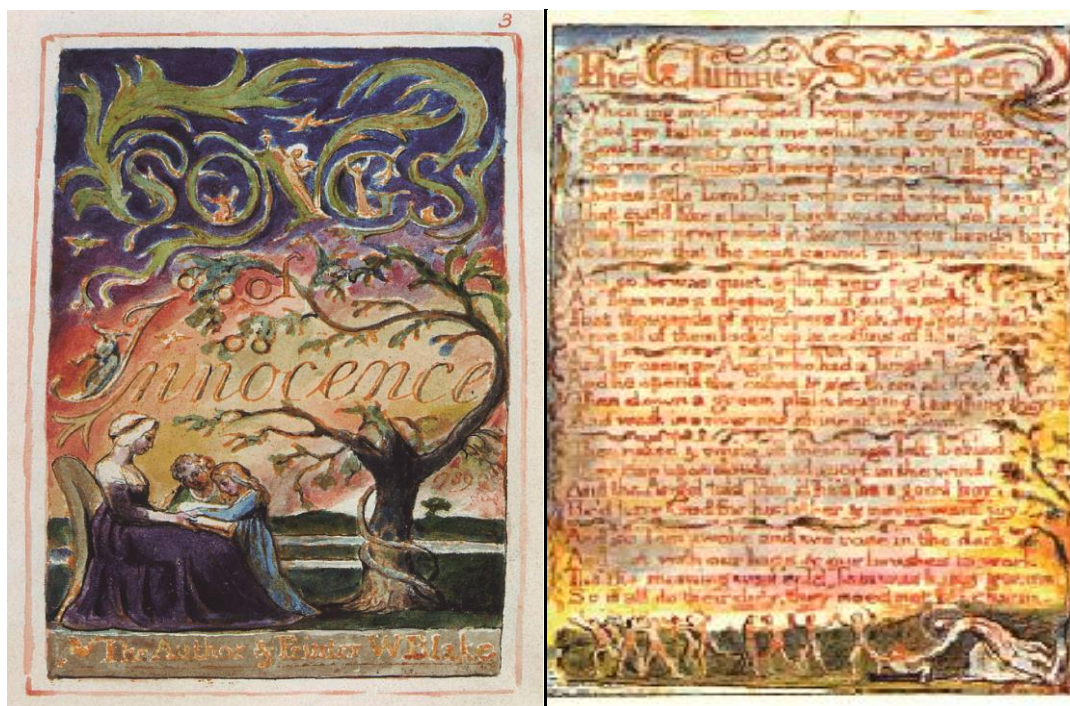 3
SONGS
of
Innocence
1789
The Author & Printer W Blake
The Chimney Sweeper
When my mother died I was very young
And my father sold me while yet my tongue
Could scarcely cry weep weep weep weep
So your chimneys I sweep & in soot I sleep
little Tom Dacre who cried when his head
That curl'd like a lambs back was shav'd so I said
Tom never mind it for when your heads bare
You know that the soot cannot spoil your white hair
so he was quiet & that very night
As Tom was a sleeping he had such a sight
That thousands of sweepers Dick Joe Ned & Jack
of them lock'd up in coffins of black
by came an Angel who had a bright key
And he open'd the coffins & set them all free
Then down a green plain leaping laughing they run
And wash in a river and shine in the Sun
naked & white, their bags left behind
They rise upon clouds and sport in the wind
And the Angel told Tom if he'd be a good boy
He'd have God for his father & never want joy
And so Tom awoke and we rose in the dark
And got with our bags & our brushes to work
Tho the morning was cold, Tom was happy & warm
So if all do their duty, they need not fear harm